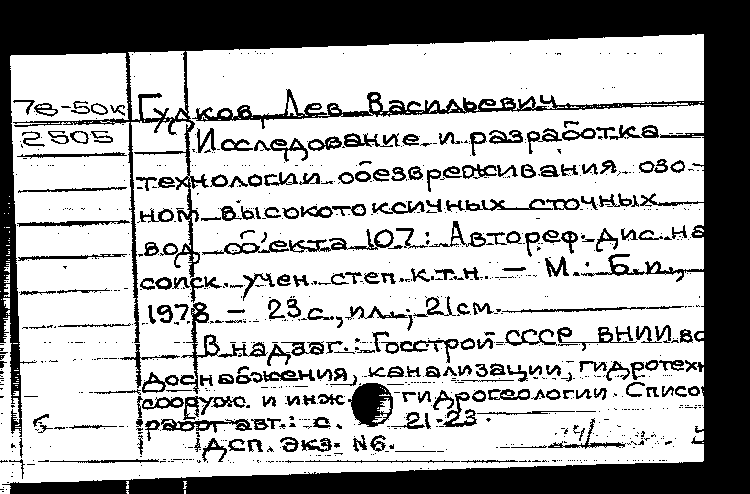 78-50к Гудков, Лев Васильевич.
2505 Исследование и разработка
технологии обезвреживания озо-
ном высокотоксичных сточных
вод объекта 107: Автореф. дис. на
соиск. учен. степ. к.т.н. — М.: Б.и.,
1978 — 23 с., ил.; 21 см.
В надзаг.: Госстрой СССР, ВНИИ во
доснабжения, канализации, гидротехн
сооруж. и инж. гидрогеологии. Списо
б работ авт.: с. 21-23.
ДСП. Экз. №6.